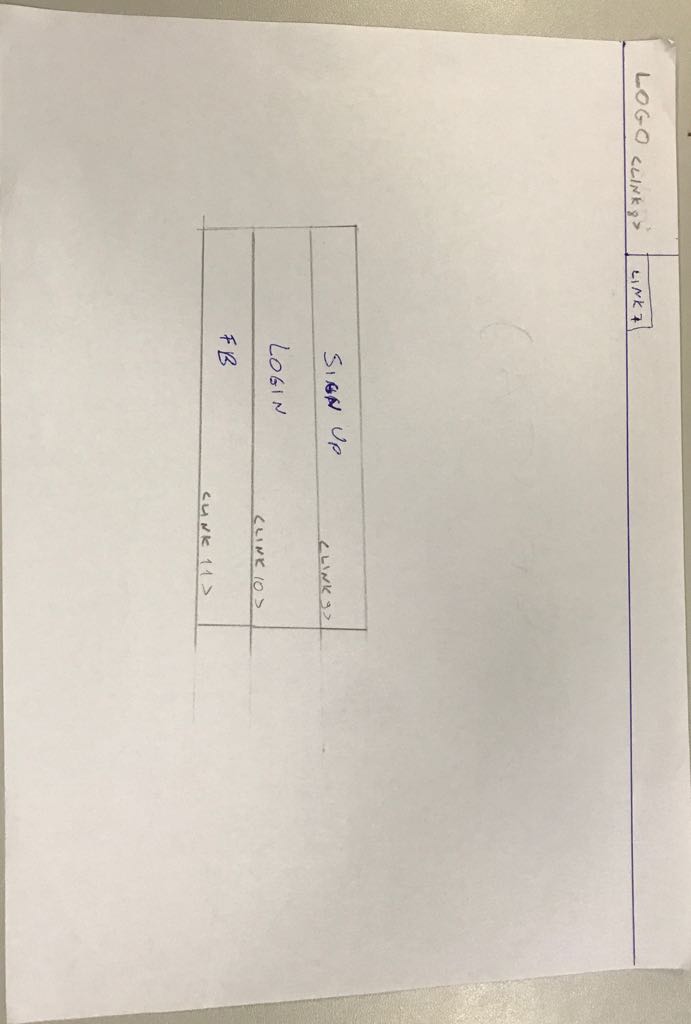 LOGO <LINK 8>
LINK 7
SIGN UP
<LINK 9>
LOGIN
<LINK 10>
FB
<LINK 11>